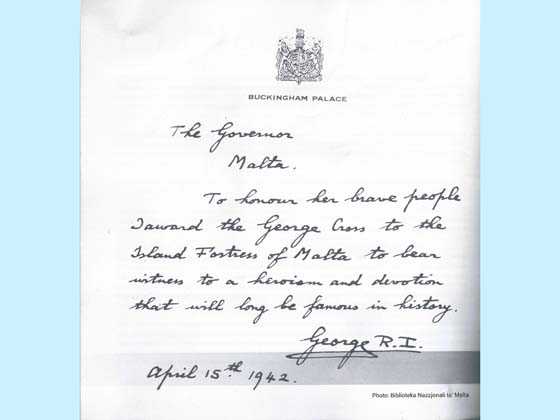 BUCKINGHAM PALACE
The Governor
Malta.
To honour her brave people
I award the George Cross to the
Island Fortress of Malta to bear
witness to a heroism and devotion
that will long be famous in history.
George R.I.
April 15th 1942.
Photo: Biblioteka Nazzjonali ta' Malta